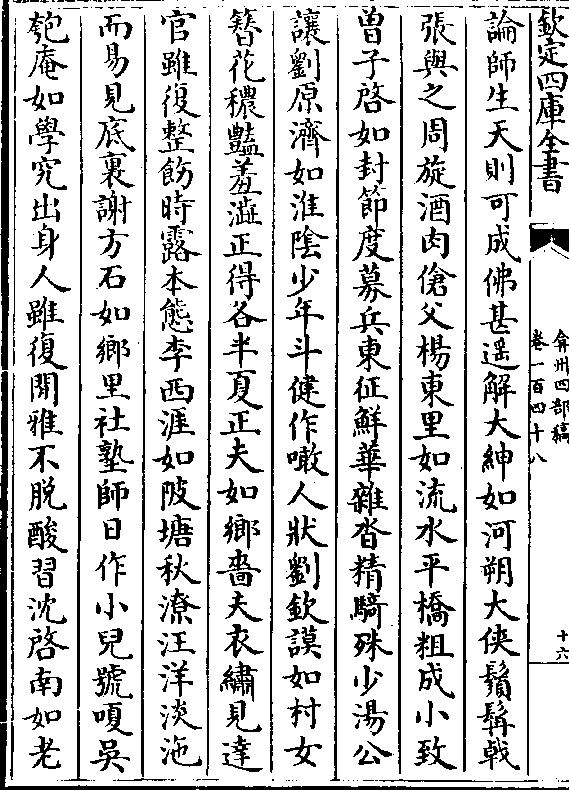 欽定四庫全書
弇州四部稿
卷一百四十八
十六
論師生天則可成佛甚遥解大紳如河朔大俠鬚髯戟
張與之周旋酒肉傖父楊東里如流水平橋粗成小致
曽子啓如封節度募兵東征鮮華雜沓精騎殊少湯公
讓劉原濟如淮陰少年斗健作噉人狀劉欽謨如村女
簪花穠豔羞澁正得各半夏正夫如鄉嗇夫衣繡見達
官雖復整飭時露本態李西涯如陂塘秋潦汪洋淡沲
而易見底裏謝方石如鄉里社塾師日作小兒號嗄吳
匏庵如學究出身人雖復閒雅不脱酸習沈啓南如老